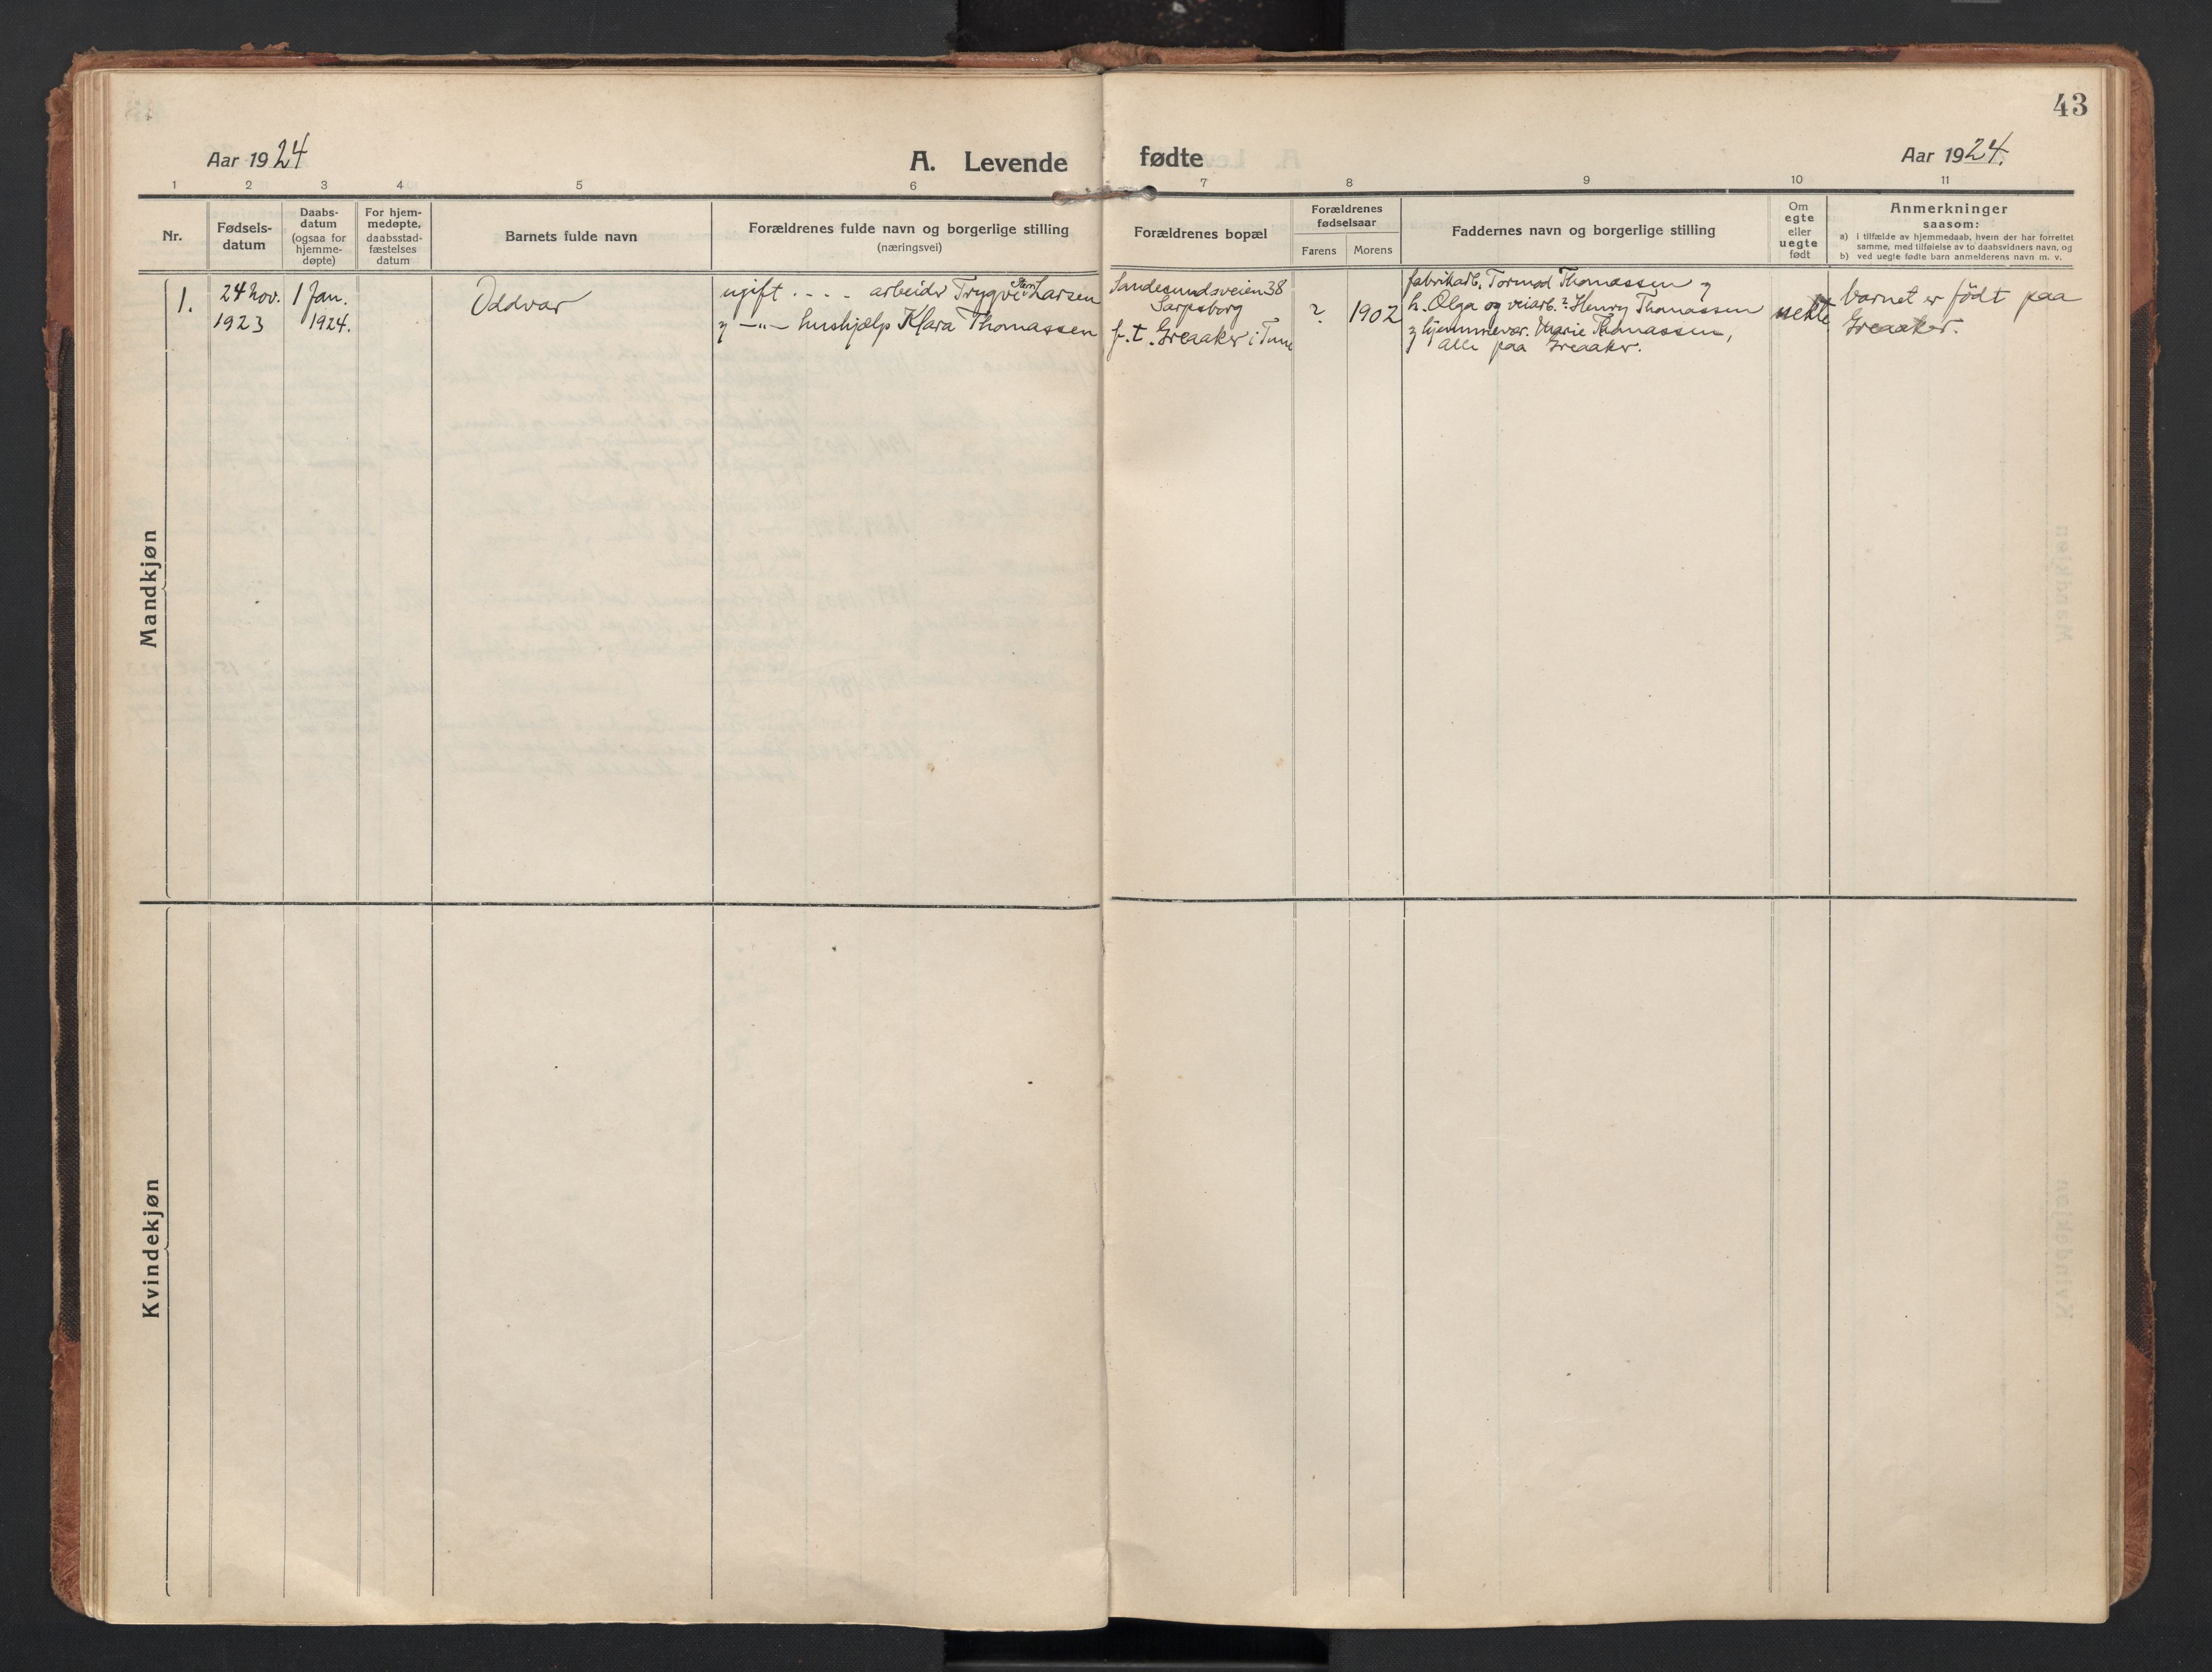 43
Aar 1924
A. Levende fødte
Aar 1924.
1 2 3 4 5 6 7 8 9 10 11
Nr.
Fødsels-
datum
Daabs-
datum
(ogsaa for
hjemme-
døpte)
For hjem-
medøpte,
daabsstad-
fæstelses
datum
Barnets fulde navn
Forældrenes fulde navn og borgerlige stilling
(næringsvei)
Forældrenes bopæl
Forældrenes
fødselsaar
Farens Morens
Faddernes navn og borgerlige stilling
Om
egte
eller
uegte
født
Anmerkninger
saasom:
a) i tilfælde av hjemmedaab, hvem der har forrettet
samme, med tilføielse av to daabsvidners navn, og
b) ved uegte fødte barn anmelderens navn m. v.
Mandkjøn
1.
24 nov.
1923
1 Jan.
1924.
Oddvar
ugift . . . . arbeider Trygve Larsen
og —"— hushjælp Klara Thomassen
Sandesundsveien 38
Sarpsborg
f. t. Greaaker i Tune
?
1902
fabrikarb. Tormod Thomassen og
h. Olga og veiarb.? Henry Thomassen
og hjemmevær. Marie Thomassen,
alle paa Greaaker.
uekte
barnet er født paa
Greaaker.
Kvindekjøn